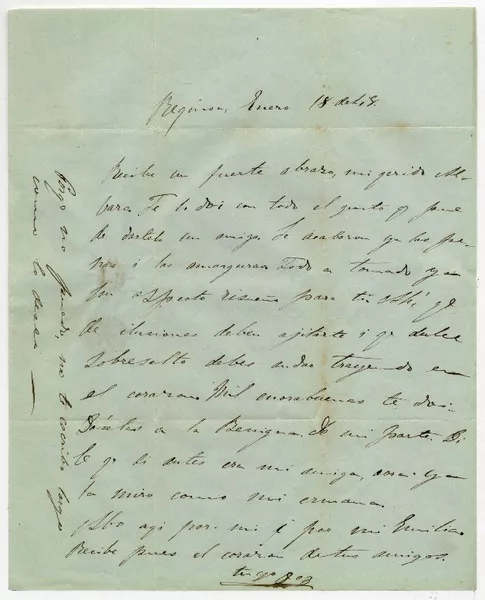 Enero 18 de
Recibe un fuerte abrazo, mi qerido Al-
varo. Te lo doi con todo el gusto q puede
de dartelo un amigo. Se acabaron ya las pe-
nas i las amarguras. Todo a tomado ya
un aspecto risueño para tu. Oh! q
de ilusiones deben ajitarte i q dulce
sobresalto debes andar trayendo en
el corazon. Mil enorabuenas te doi.
Dáselas a la Benigna de mi parte. Di
le q si antes era mi amiga, aora ya
la miro como mi ermana.
aqi por mi i por mi Emilia
Recibe pues el corazon de tus amigos.
Tengo no te escribo largo
como lo desea